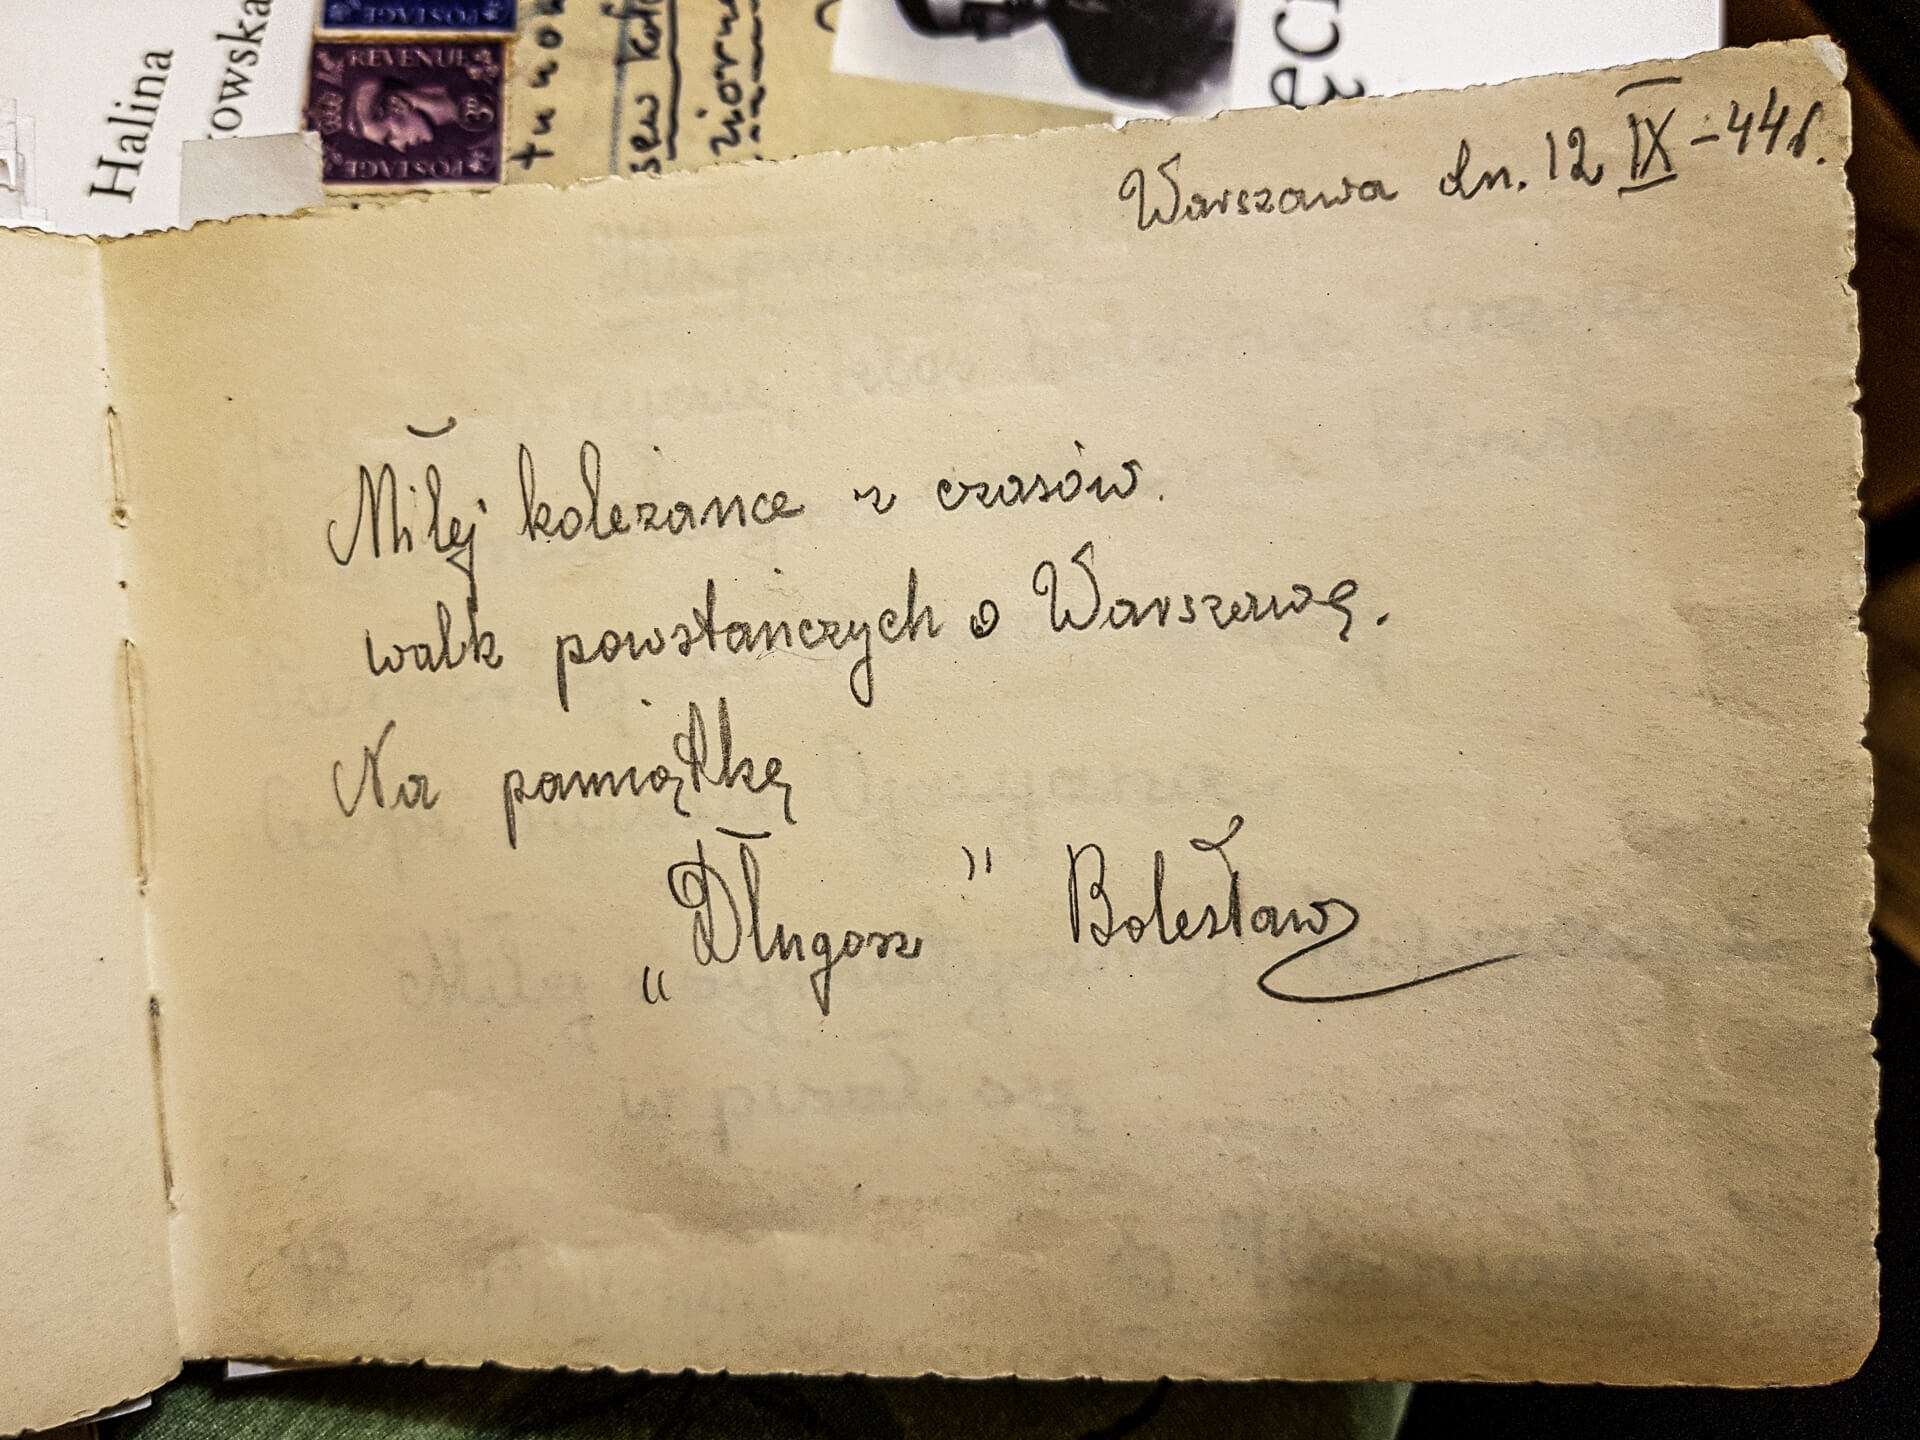 Halina
REVENUE
POSTAGE
POSTAGE
Warszawa dn. 12 IX – 44r.
Miłej kolezance z czasów.
walk powstańczych o Warszawę.
Na pamiątkę
„Długosz" Bolesław